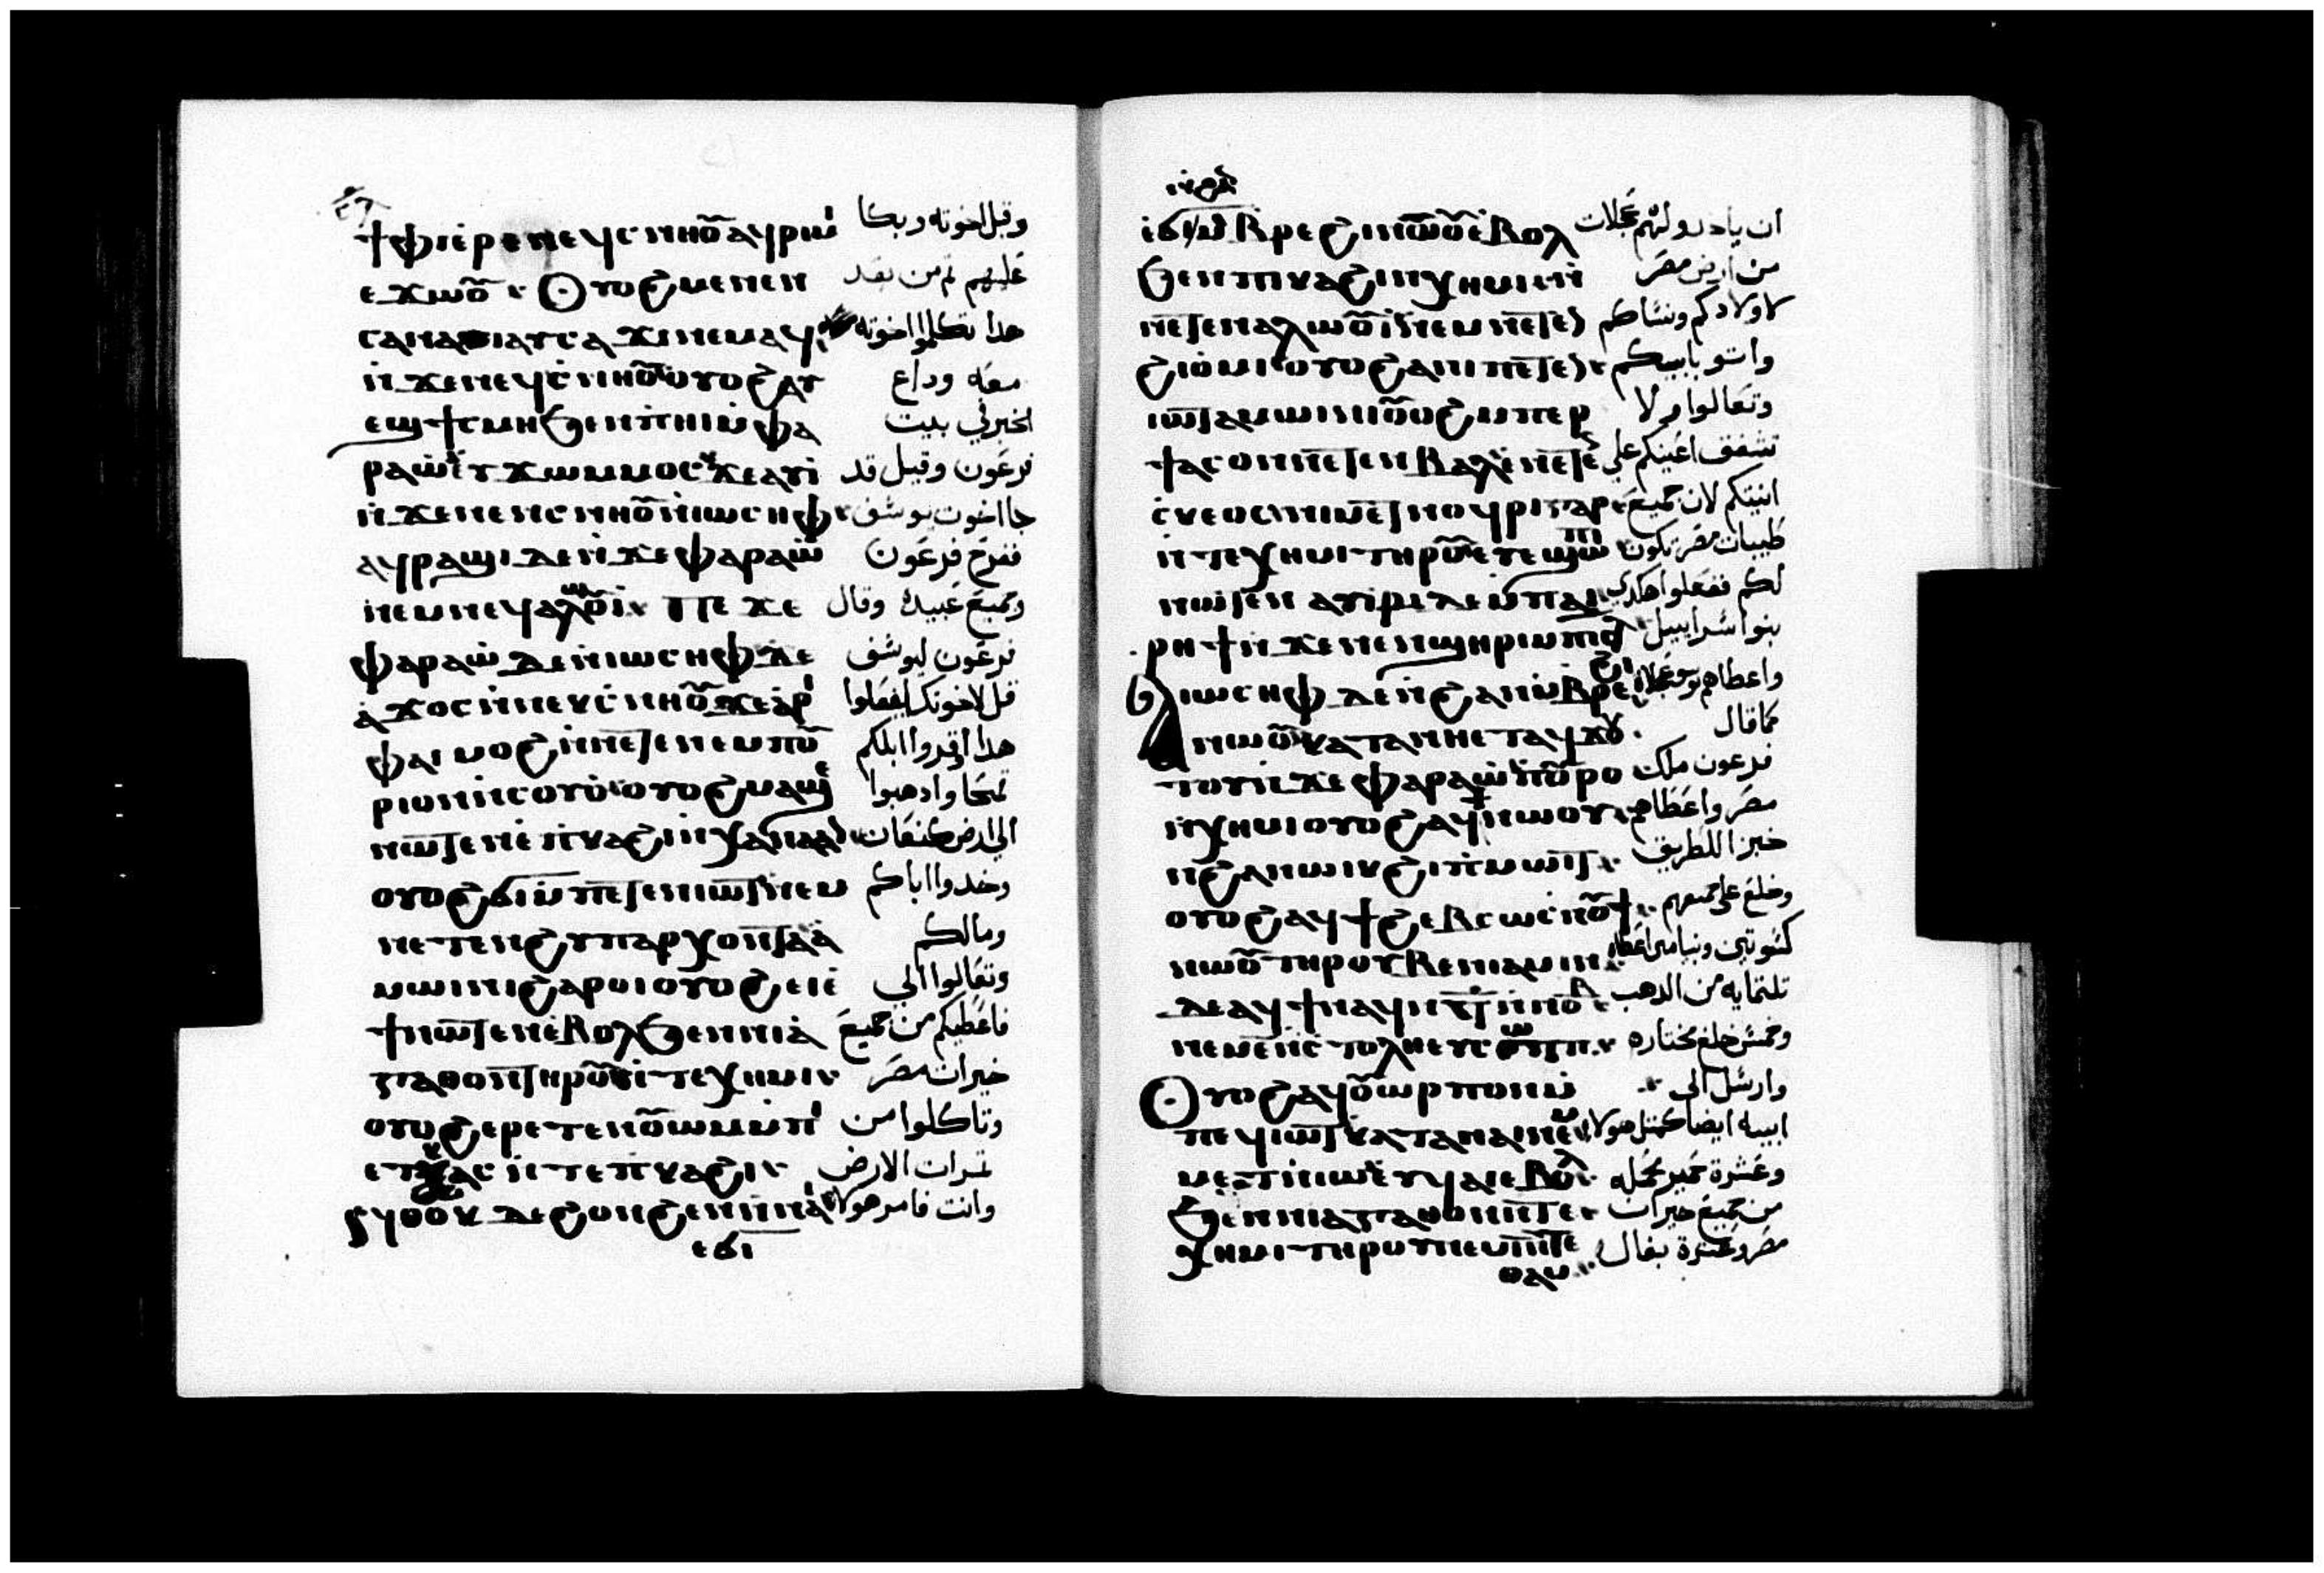 ϯⲫⲓ ⲉⲣⲉⲛⲉϥⲥⲛⲏⲟⲩ ⲁϥⲣⲓⲙⲓ وقبل اخوته وبكا
ⲉϫⲱⲟⲩ Ⲟⲩⲟϩ ⲙⲉⲛⲉⲛ عليهم ثم من بعد
ⲥⲁⲛⲁⲓ ⲁⲩⲥⲁϫⲓ ⲛⲉⲙⲁϥ هدا تكلموا اخوته
ⲛ̀ϫⲉⲛⲉϥⲥⲛⲏⲟⲩ ⲟⲩⲟϩ ⲁⲩ معه وداع
ⲉϣϯⲥⲙⲏ ϧⲉⲛⲡⲏⲓ ⲙ̀ⲫⲁ الخبر في بيت
ⲣⲁⲱ ⲉⲩϫⲱⲙⲙⲟⲥ ϫⲉⲁⲩⲓ فرعون وقيل قد
ⲛ̀ϫⲉⲛⲉⲛⲥⲛⲏⲟⲩ ⲛ̀ⲓⲱⲥⲏⲫ جا اخوت يوسف
ⲁϥⲣⲁϣⲓ ⲇⲉ ⲛ̀ϫⲉⲫⲁⲣⲁⲱ ففرح فرعون
ⲛⲉⲙⲛⲉϥⲁⲗⲱⲟⲩⲓ Ⲡⲉϫⲉ وجميع عبيده وقال
ⲫⲁⲣⲁⲱ ⲇⲉ ⲛ̀ⲓⲱⲥⲏⲫ ϫⲉ فرعون ليوسف
ⲁ̀ϫⲟⲥ ⲛ̀ⲛⲉⲕⲥⲛⲏⲟⲩ ϫⲉ ⲁⲣⲓ قل لاخوتك افعلوا
ⲫⲁⲓ ⲙⲟϩ ⲛ̀ⲛⲉⲧⲉⲛⲉⲙⲡⲟⲩ هدا اوقروا ابلكم
ⲣⲓⲟⲛ ⲛ̀ⲥⲟⲩⲟ ⲟⲩⲟϩ ⲙⲁϣⲉ قمحا وادهبوا
ⲛⲱⲧⲉⲛ ⲉ̀ⲡⲕⲁϩⲓ ⲛ̀ⲭⲁⲛⲁⲁⲛ الي ارض كنعان
ⲟⲩⲟϩ ϭⲓ ⲙ̀ⲡⲉⲧⲉⲛⲓⲱⲧ ⲛⲉⲙ وخدوا اباكم
ⲛⲉⲧⲉⲛϩⲩⲡⲁⲣⲭⲟⲛⲧⲁ ⲁ̀ ومالكم
ⲙⲱⲓⲛⲓ ϩⲁⲣⲟⲓ ⲟⲩⲟϩ ⲉⲓⲉ̀ وتعالوا الي
ϯⲛⲱⲧⲉⲛ ⲉ̀ⲃⲟⲗϧⲉⲛⲛⲓⲁ̀ فاعطيكم من جميع
ⲅⲁⲑⲟⲛ ⲧⲏⲣⲟⲩ ⲛ̀ⲧⲉⲭⲏⲙⲓ خيرات مصر
ⲟⲩⲟϩ ⲉⲣⲉⲧⲉⲛⲟⲩⲱⲙ ⲙ̀ⲡⲓ وتاكلوا من
ⲁⲥ ⲛ̀ⲧⲉⲡⲕⲁϩⲓ ثمرات الارض
ⲛ̀ⲑⲟⲕ ⲇⲉ ϩⲟⲛϩⲉⲛ ⲛ̀ⲛⲁⲓ وانت فامر هولاي
ⲉϭⲓ
ⲉ̀ϭⲓ ⲃⲣⲉϩⲓ ⲛⲱⲟⲩ ⲉ̀ⲃⲟⲗ ان ياخدو لهم عجلات
ϧⲉⲛⲡⲕⲁϩⲓ ⲛ̀ⲭⲏⲙⲓ ⲛ̀ من ارض مصر
ⲛⲉⲧⲉⲛⲁⲗⲱⲟⲩⲓ ⲛⲉⲙⲛⲉⲧⲉⲛ لاولادكم ونساكم
ϩⲓⲟ̀ⲙⲓ ⲟⲩⲟϩ ⲁⲛⲓ ⲡⲉⲧⲉⲛ واتو بابيكم
ⲓⲱⲧ ⲁⲙⲱⲓⲛⲓ ⲟⲩⲟϩ ⲙⲡⲉⲣ وتعالوا ولا
ϯⲁⲥⲟ ⲛ̀ⲛⲉⲧⲉⲛⲃⲁⲗ ⲉ̀ⲛⲉⲧⲉⲛ تشفق اعينكم علي
ⲥⲕⲉⲟⲥ ⲛⲓⲃⲉⲛ ⲛⲟϥⲣⲓ ⲅⲁⲣ انيتكم لان جميع
ⲛ̀ⲧⲉⲭⲏⲙⲓ ⲧⲏⲣⲟⲩ ⲉⲩⲉϣⲱⲡⲓ طيبات مصر تكون
ⲛⲱⲧⲉⲛ ⲁⲩⲓⲣⲓ ⲇⲉ ⲙ̀ⲡⲁⲓ لكم ففعلوا هكدي
ⲣⲏϯ ⲛ̀ϫⲉⲛⲉⲛϣⲏⲣⲓ ⲙ̀ⲡⲓⲥⲗ بنوا اسراييل
Ⲁ ⲓⲱⲥⲏⲫ ⲇⲉ ϯ ⲛ̀ϩⲁⲛⲃⲣⲉϩⲓ واعطاهم يوسف عجلات
ⲛⲱⲟⲩ ⲕⲁⲧⲁ ⲛⲏⲉⲧⲁϥϫⲟ كما قال
ⲧⲟⲩ ⲛ̀ϫⲉⲫⲁⲣⲁⲱ ⲡ̀ⲟⲩⲣⲟ فرعون ملك
ⲛ̀ⲭⲏⲙⲓ ⲟⲩⲟϩ ⲁϥϯ ⲛⲱⲟⲩ مصر واعطاهم
ⲛ̀ϩⲁⲛⲱⲓⲕ ϩⲓⲡⲙⲱⲓⲧ خبزا للطريق
ⲟⲩⲟϩ ⲁϥϯ ϩⲉⲃⲥⲱ ⲥⲛⲟⲩϯ وخلع علي جميعهم
ⲛⲱⲟⲩ ⲧⲏⲣⲟⲩ ⲃⲉⲛⲓⲁⲙⲓⲛ كسوتين وبنيامين اعطاه
ⲇⲉ ⲁϥϯⲛⲁϥ ⲛ̀ⲧ ⲛ̀ⲛⲟⲩⲃ تلتمايه من الدهب
ⲛⲉⲙ ⲉ̄ ⲛ̀ⲥⲧⲟⲗⲏ ⲉⲩⲥⲱⲧⲡ وخمس خلع مختاره
Ⲟⲩⲟϩ ⲁϥⲟⲩⲱⲣⲡ ⲟⲛ ⲙ̀ وارسل الي
ⲡⲉϥⲓⲱⲧ ⲕⲁⲧⲁ ⲛⲁⲓ ⲛⲉⲙ ابيه ايضا كمثل هولاي
ⲙⲉⲧ ⲛ̀ⲓⲱ ⲉⲩϥⲁⲓ ⲉ̀ⲃⲟⲗ وعشرة حمير محمله
ϧⲉⲛⲛⲓⲁⲅⲁⲑⲟⲛ ⲛ̀ⲧⲉ من جميع خيرات
ⲭⲏⲙⲓ ⲧⲏⲣⲟⲩ ⲛⲉⲙ ⲓ̄ ⲙ̀ⲙⲁⲥⲉ مصر وعشرة بغال
ⲑⲁⲙ